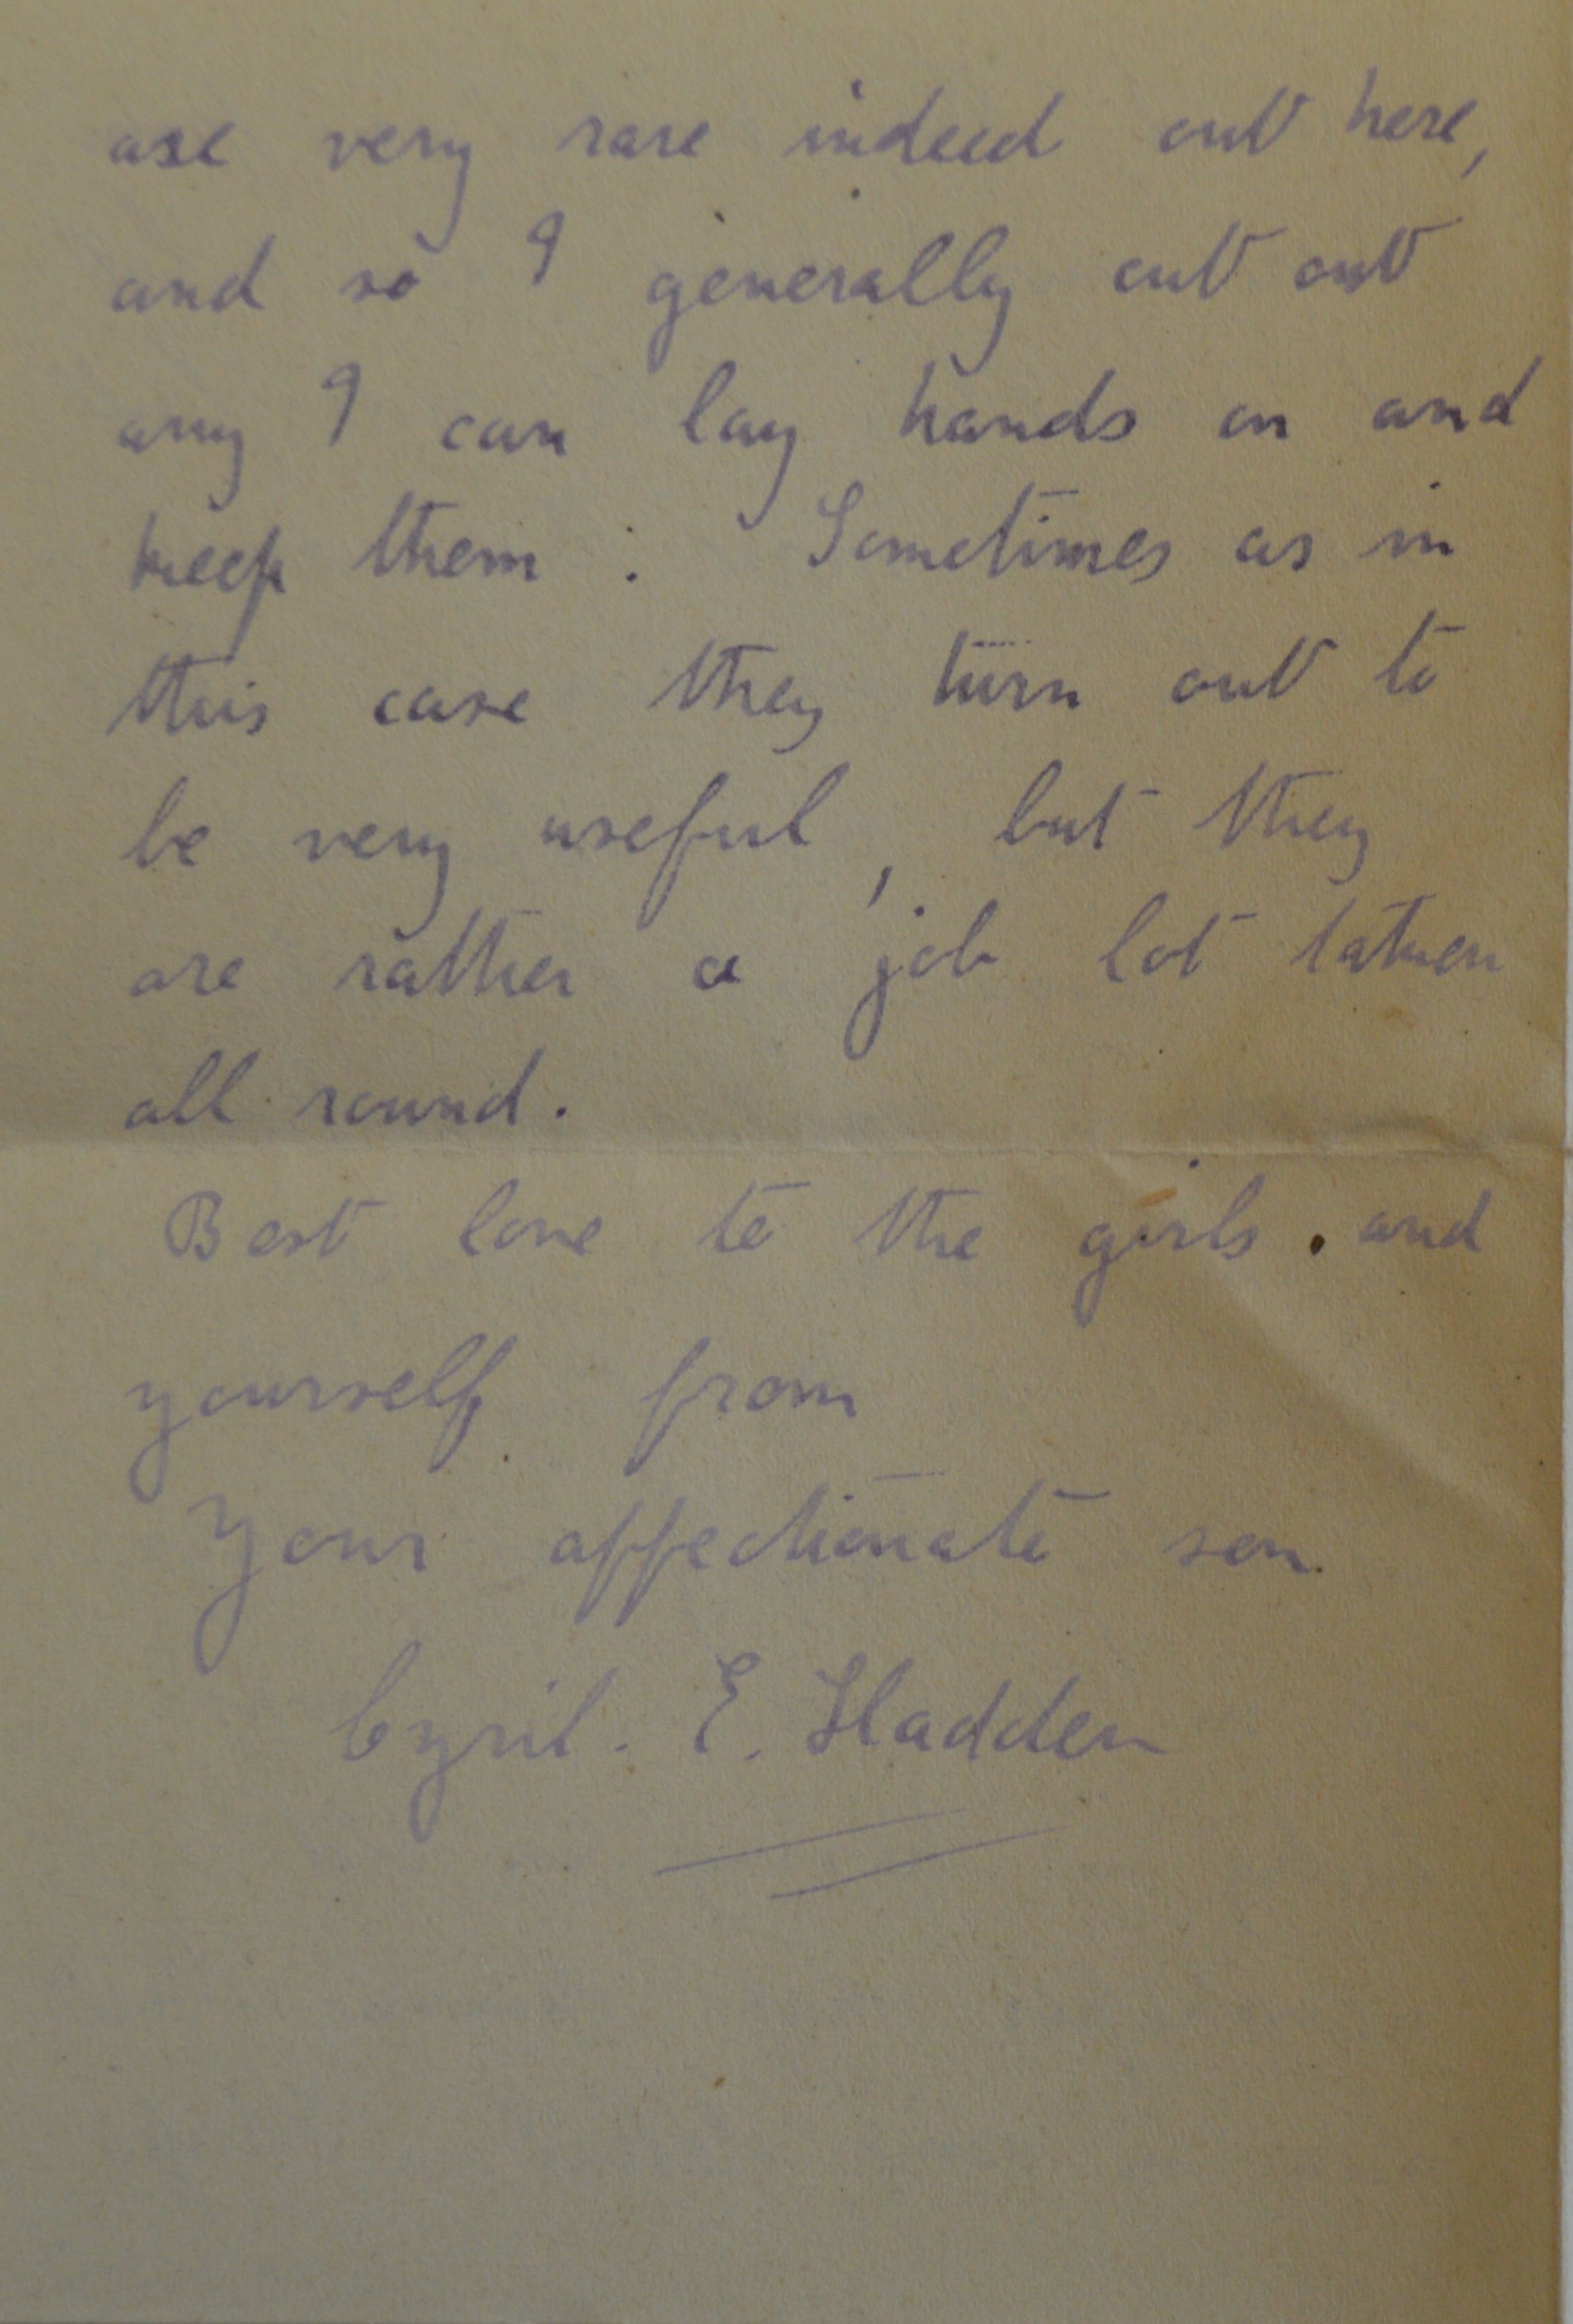 are very rare indeed out here,
and so I generally cut out
any I can lay hands on and
keep them. Sometimes as in
this case they turn out to
be very useful, but they
are rather a job lot taken
all round.
Best love to the girls and
yourself from
Your affectionate son
Cyril. E. Sladden